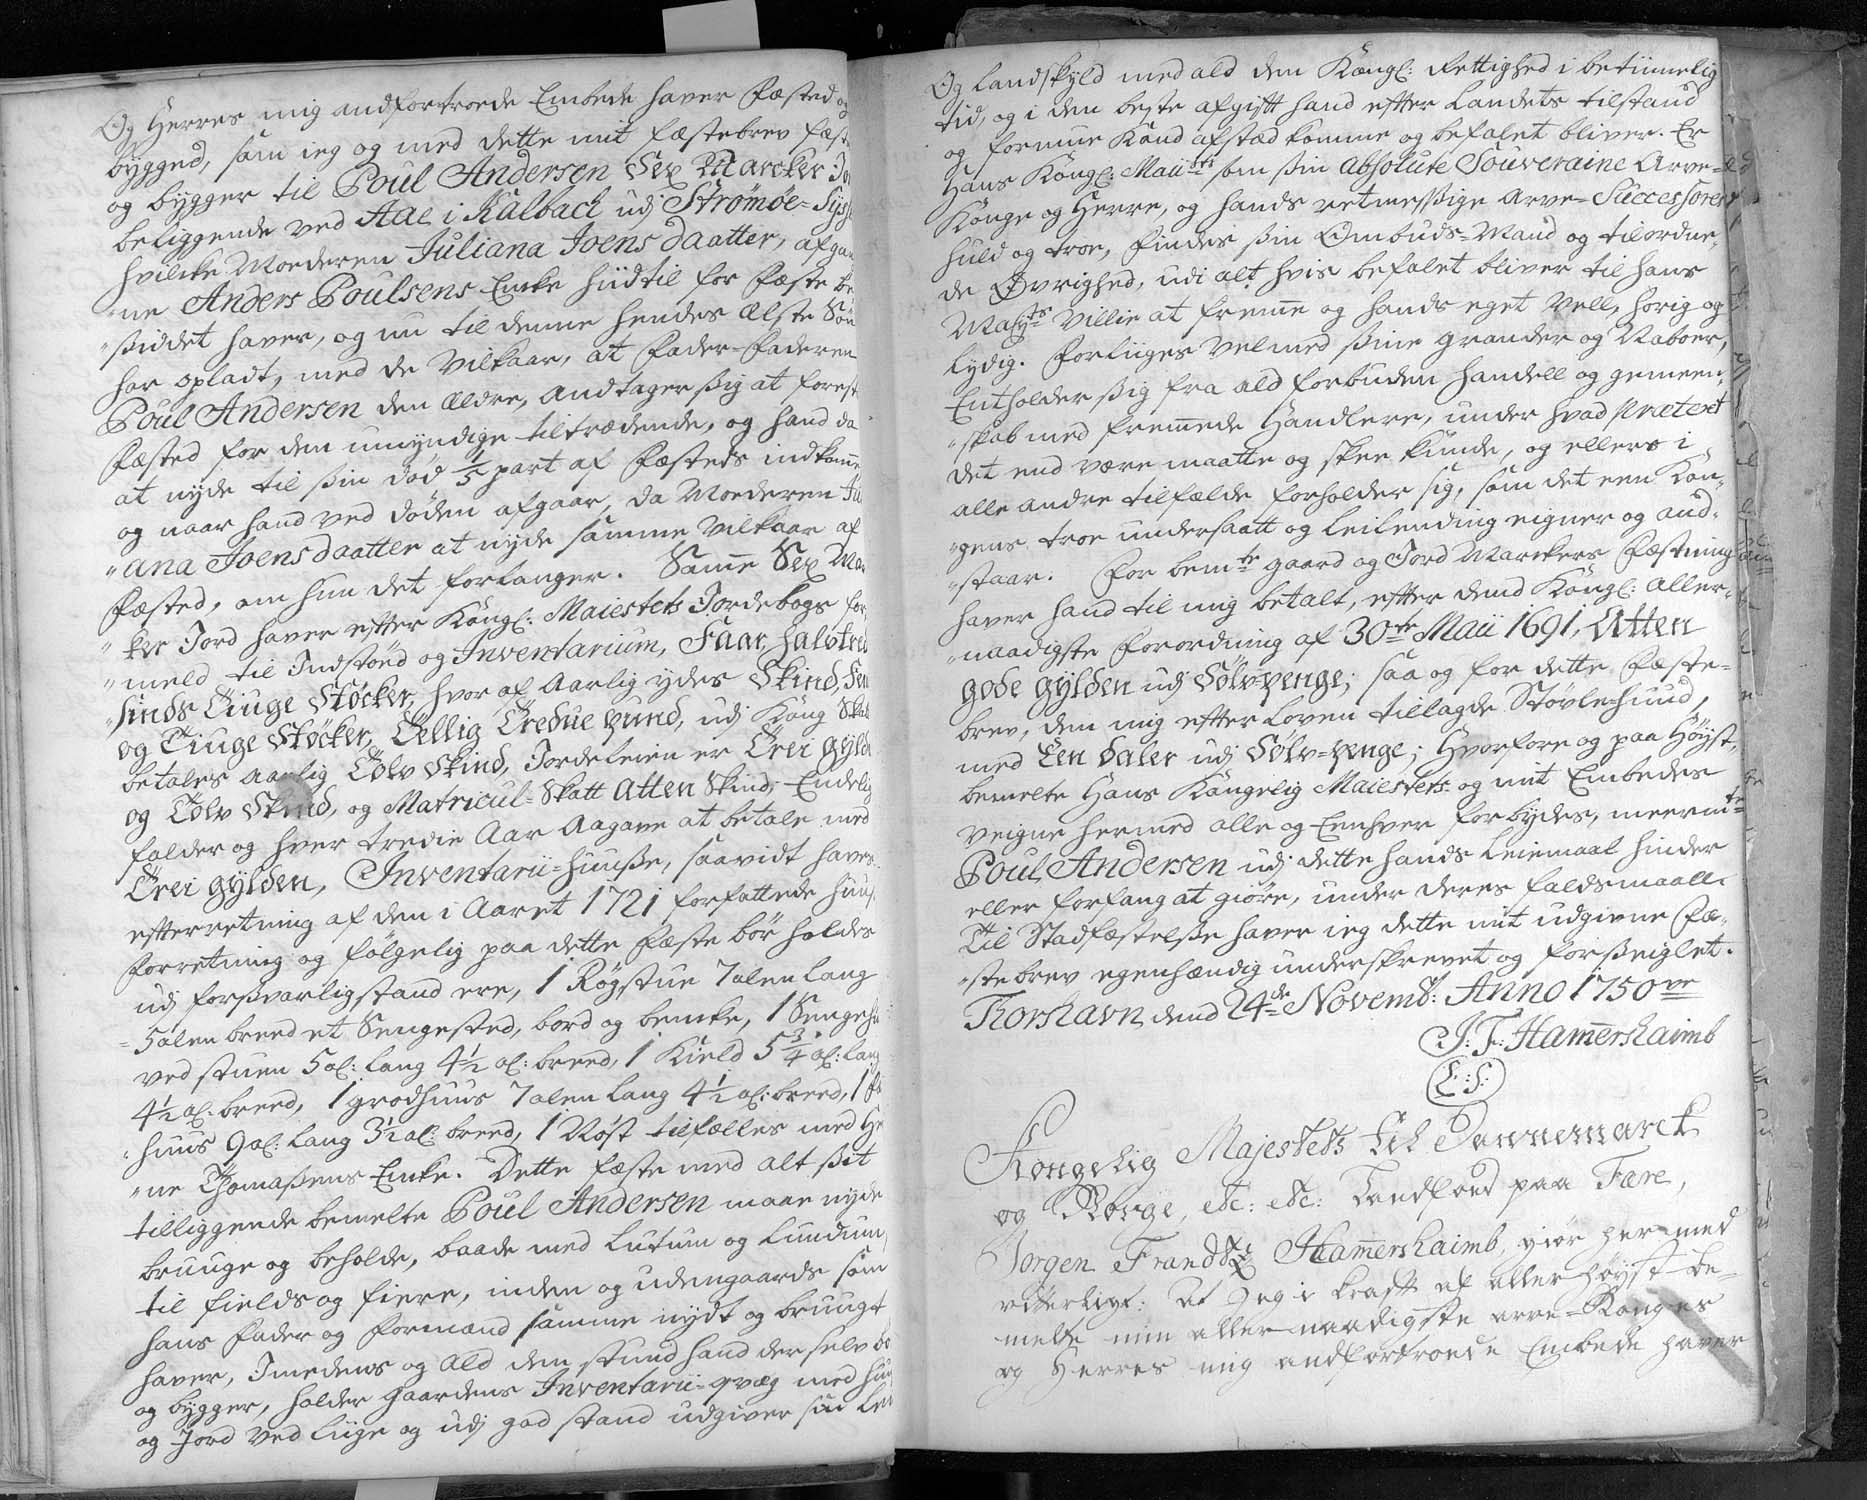 Og Herres mig andfortroede Embede haver Fæsted og
bygged, som ieg og med dette mit fæstebrev fæst
og bygger til Poul Andersen Sex Marcker Jo
beliggende ved Aae i Kalback udj Strømøe-Syss
hvilcke Moederen Juliana Joens daatter, afgan
"ne Anders Poulsens Encke hiidtil for Fæste be
"siddet haver, og nu til denne hendes Ælste Søn
har opladt, med de Vilkaar, at Fader-Faderen
Poul Andersen den ældre, andtager sig at forest
Fæsted for den umyndige tiltrædende, og hand da
at nyde til sin død 1/5 part af Fæsteds indkome
og naar hand ved døden afgaar, da Moederen Ju
"ana Joensdaatter at nyde samme Vilkaar af
Fæsted, om hun det forlanger. Same Sex Mar
"ker Jord haver efter Kongl: Maiestets Jordebogs for
"meld til Indstønd og Inventarium, Faar, halvtred
"sinds Tiuge Støcker, hvor af Aarlig ydes Skind, Fem
og Tiuge Støcker, Tellig Tredue pund, udj Kong Skatt
betales aarlig Tolv Skind, Jordeleien er Trei gylden
og Tolv Skind, og Matricul-Skatt Atten Skind; Endelig
falder og hver tredie Aar Aagave at betale med
Trei gylden, Inventarii-huuse, saavidt haves
efterretning af den i Aaret 1721 forfattede huus
forretning og følgelig paa dette Fæste bør holdes
udj forsvarlig stand ere, 1 Røgstue 7 alen lang
5 alen breed et Sengested, bord og bencke, 1 Sengehu
ved stuen 5 al: lang 4½ al: breed, 1 Kield 5¾ al: lang
4½ al. breed, 1 grodhuus 7 alen lang 4½ al: breed, 1 fæ
"huus 9 al: lang 3½ al: breed, 1 Nøst tilfælles med He
"ne Thomasens Encke. Dette fæste med alt sit
tilliggende bemelte Poul Andersen maae nyde
bruuge og beholde, baade med lutum og lundum
til fields og fiere, inden og udengaards som
hans Fader og Formænd samme nydt og bruugt
haver, Imedens og ald den stund hand der selv bo
og bygger, holder gaardens Inventarii-qvæg med huus
og Jord ved liige og udj god stand udgiver sin Lei
Og landskyld med ald den Kongl: Rettighed i betiimelig
tid, og i den beste afgift hand efter Landets tilstand
og formue Kand afsted komme og befalet bliver. Er
Hans Kongl: Maii:tt som sin absolute Souveraine Arve-
Konge og Herre, og hands retmessige Arve-Successorer
huld og troe, findes sin Ombuds-Mand og tilordne-
de Øvrighed, udi alt hvis befalet bliver til hans
May:ts Villie at fremme og hands eget Vell, hørig og
lydig. Forliiges vel med sine grander og Naboer,
Entholder sig fra ald forbuden Handell og gemeen-
"skab med fremmede Handlere, under hvad prætext
det end være maatte og skee kunde, og ellers i
alle andre tilfælde forholder sig, som det een Kon-
"gens troe undersaatt og Leilending eigner og and-
"staar. For bem:te gaard og Jord Marckers Fæstning
haver hand til mig betalt, efter dend Kongl: aller-
"naadigste Forordning af 30:te Maii 1691, Atten
gode gylden udj Sølv-penge; saa og for dette Fæste-
brev, den mig efter Loven tillagde Støvlehuud,
med Een daler udj Sølv-penge; Hvorfore og paa Høyst-
bemelte Hans Kongelig Maiestets og mit Embedes
Veigne hermed alle og Eenhver forbydes, meerm:te
Poul Andersen udj dette hands Leiemaal hinder
eller forfang at giøre, under deres faldsmaall.
Til Stadfæstelse haver ieg dette mit udgivne Fæ-
"stebrev egenhændig underskrevet og forseiglet.
Thorshavn dend 24:de Novemb: Anno 1750:ve
J: F: Hamershaimb
(L:S:)
Kongelig Majestets til Dannemarck
og Norge, etc: etc: Landfoed paa Fære,
Jørgen Frandtz Hamershaimb, giør hermed
vitterligt: At Jeg i kraft af aller høyst be-
melte min aller naadigste arve-Konges
og Herres mig andfortroede Embede haver